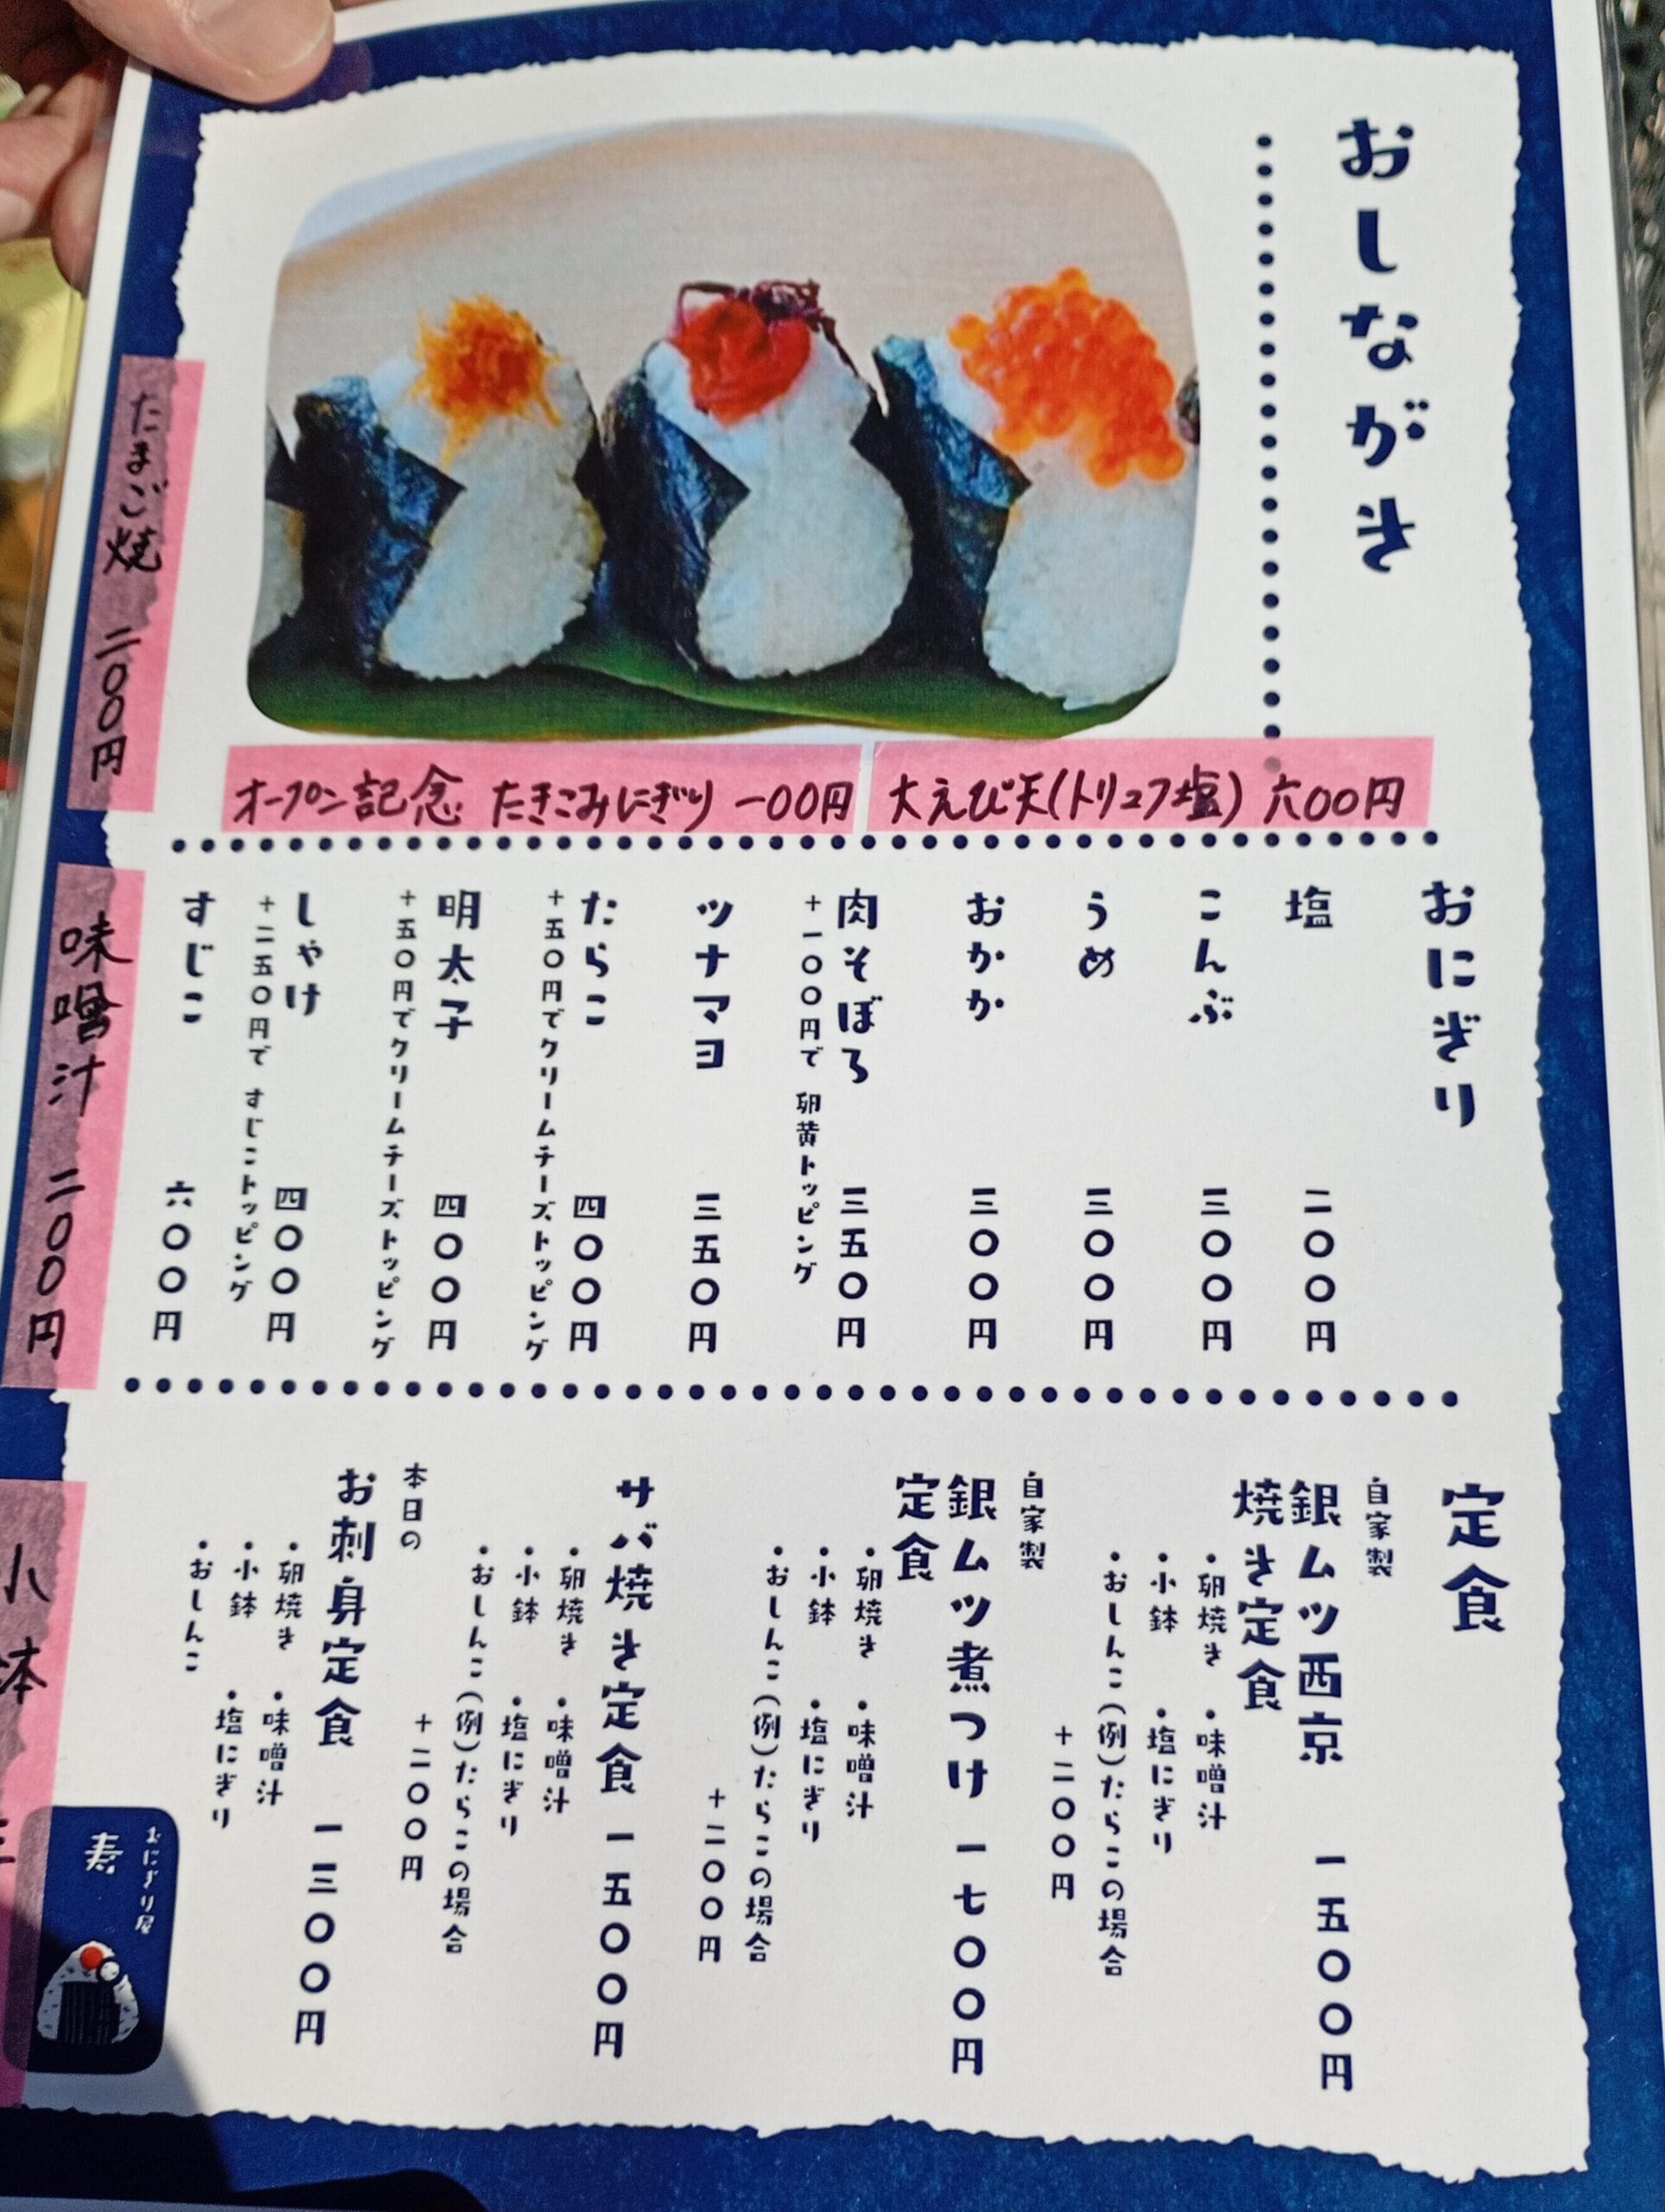 おしながき
大えび天(トリュフ塩) 六00円
オープン記念 たきこみにぎり 一00円
おにぎり
塩 二〇〇円
こんぶ 三〇〇円
うめ 三〇〇円
おかか 三〇〇円
肉そぼろ 三五〇円
+一〇〇円で 卵黄トッピング
ツナマヨ 三五〇円
たらこ 四〇〇円
+五〇円でクリームチーズトッピング
明太子 四〇〇円
+五〇円でクリームチーズトッピング
しゃけ 四〇〇円
+二五〇円で すじこトッピング
すじこ 六〇〇円
定食
自家製
銀ムツ西京 一五〇〇円
焼き定食
・卵焼き ・味噌汁
・小鉢 ・塩にぎり
・おしんこ(例)たらこの場合
+二〇〇円
自家製
銀ムツ煮つけ 一七〇〇円
定食
・卵焼き ・味噌汁
・小鉢 ・塩にぎり
・おしんこ(例)たらこの場合
+二〇〇円
サバ焼き定食 一五〇〇円
・卵焼き ・味噌汁
・小鉢 ・塩にぎり
・おしんこ(例)たらこの場合
+二〇〇円
本日の
お刺身定食 一三〇〇円
・卵焼き ・味噌汁
・小鉢 ・塩にぎり
・おしんこ
たまご焼 二00円
味噌汁 二00円
小鉢
おにぎり屋
寿